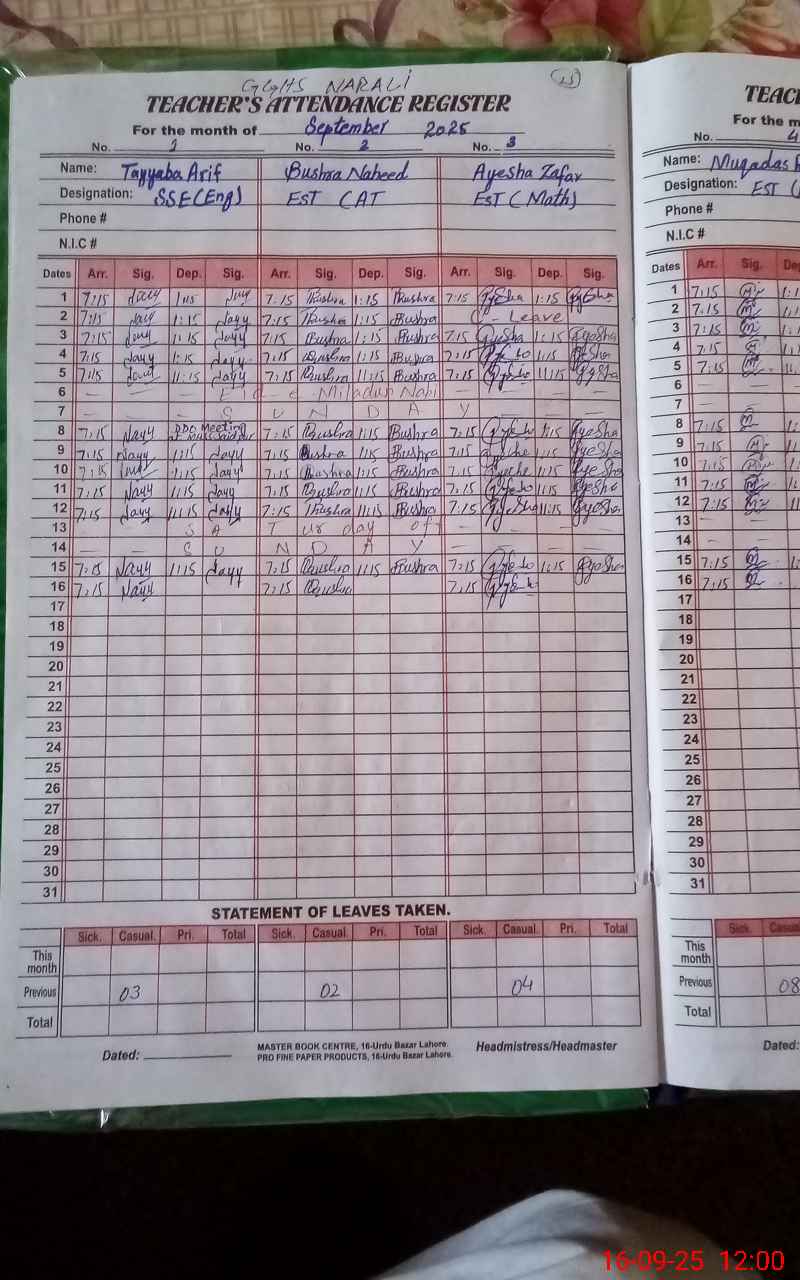 GGHS NARALI
TEACHER'S ATTENDANCE REGISTER
For the month of September 2025
No. 1 No. 2 No. 3
Name: Tayyaba Arif Bushra Naheed Ayesha Zafar
Designation: SSE(Eng) EST (AT EST (Math)
Phone #
N.I.C #
Dates Arr. Sig. Dep. Sig. Arr. Sig. Dep. Sig. Arr. Sig. Dep. Sig.
1 7:15 1:15 7:15 Bushra 1:15 Bushra 7:15 Ayesha 1:15 Ayesha
2 7:15 1:15 7:15 Bushra 1:15 Bushra C - Leave
3 7:15 1:15 7:15 Bushra 1:15 Bushra 7:15 Ayesha 1:15 Ayesha
4 7:15 1:15 7:15 Bushra 1:15 Bushra 7:15 1:15 Ayesha
5 7:15 11:15 7:15 Bushra 11:15 Bushra 7:15 11:15 Ayesha
6 — — — E d - e - Miladun Nabi — — —
7 — — — S U N D A Y — — —
8 7:15 DDO Meeting at 7:15 Bushra 1:15 Bushra 7:15 1:15 Ayesha
9 7:15 1:15 7:15 Bushra 1:15 Bushra 7:15 1:15 Ayesha
10 7:15 1:15 7:15 Bushra 1:15 Bushra 7:15 1:15 Ayesha
11 7:15 1:15 7:15 Bushra 1:15 Bushra 7:15 1:15 Ayesha
12 7:15 11:15 7:15 Bushra 11:15 Bushra 7:15 Ayesha 11:15 Ayesha
13 — — S A T ur day off — — —
14 — — S U N D A Y — — —
15 7:15 1:15 7:15 Bushra 1:15 Bushra 7:15 1:15 Ayesha
16 7:15 7:15 Bushra 7:15
17
18
19
20
21
22
23
24
25
26
27
28
29
30
31
STATEMENT OF LEAVES TAKEN.
Sick. Casual. Pri. Total Sick. Casual. Pri. Total Sick. Casual. Pri. Total
This month
Previous 03 02 04
Total
Dated: MASTER BOOK CENTRE, 16-Urdu Bazar Lahore. Headmistress/Headmaster
PRO FINE PAPER PRODUCTS, 16-Urdu Bazar Lahore.
No. 4
Name: Muqadas
Designation: EST
Phone #
N.I.C #
Dates Arr. Sig.
1 7:15
2 7:15
3 7:15
4 7:15
5 7:15
6 —
7 —
8 7:15
9 7:15
10 7:15
11 7:15
12 7:15
13 —
14 —
15 7:15
16 7:15
17
18
19
20
21
22
23
24
25
26
27
28
29
30
31
Sick.
This month
Previous 08
Total
Dated:
16-09-25 12:00